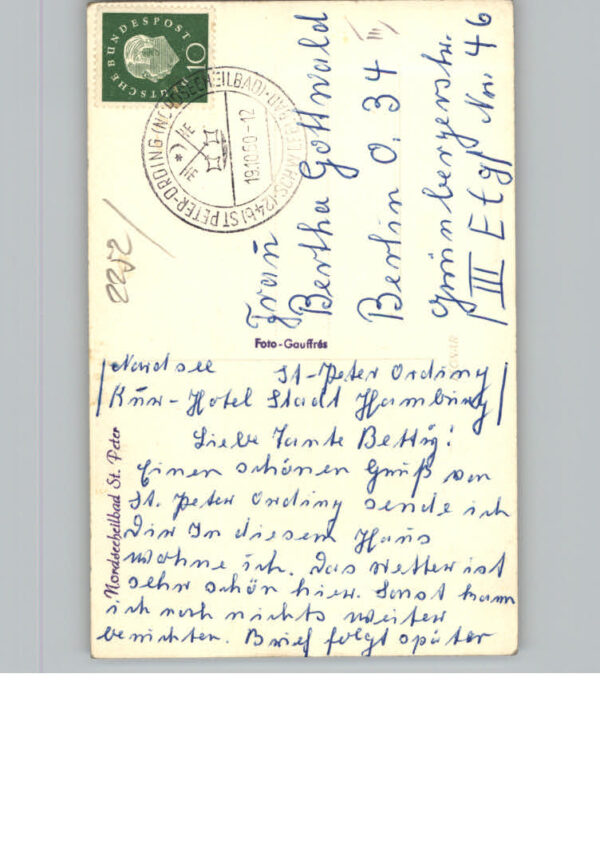 DEUTSCHE BUNDESPOST
10
(24b) ST PETER-ORDING (NORDSEEHEILBAD)
19.10.60-12
2252
Frau
Bertha Gottwald
Berlin O. 34
Grünbergerstr.
III Etg Nr. 46
Foto-Gauffrés
Nordseeheilbad St. Peter
Nordsee St-Peter Ording
Kur-Hotel Stadt Hamburg
Liebe Tante Betty!
Einen schönen Gruß von
St. Peter Ording sende ich
Dir In diesem Haus
wohne ich. Das Wetter ist
sehr schön hier. Sonst kann
ich noch nichts weiter
berichten. Brief folgt später